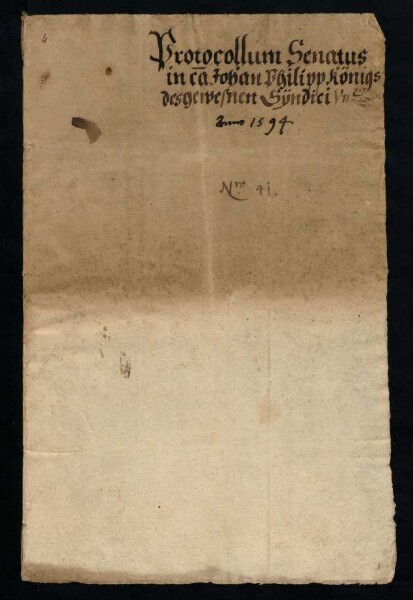 4
Protocollum Senatus
in cã Johan Philipp Königs
desgewesnen Sÿndici
Anno 1594
Nro 41.